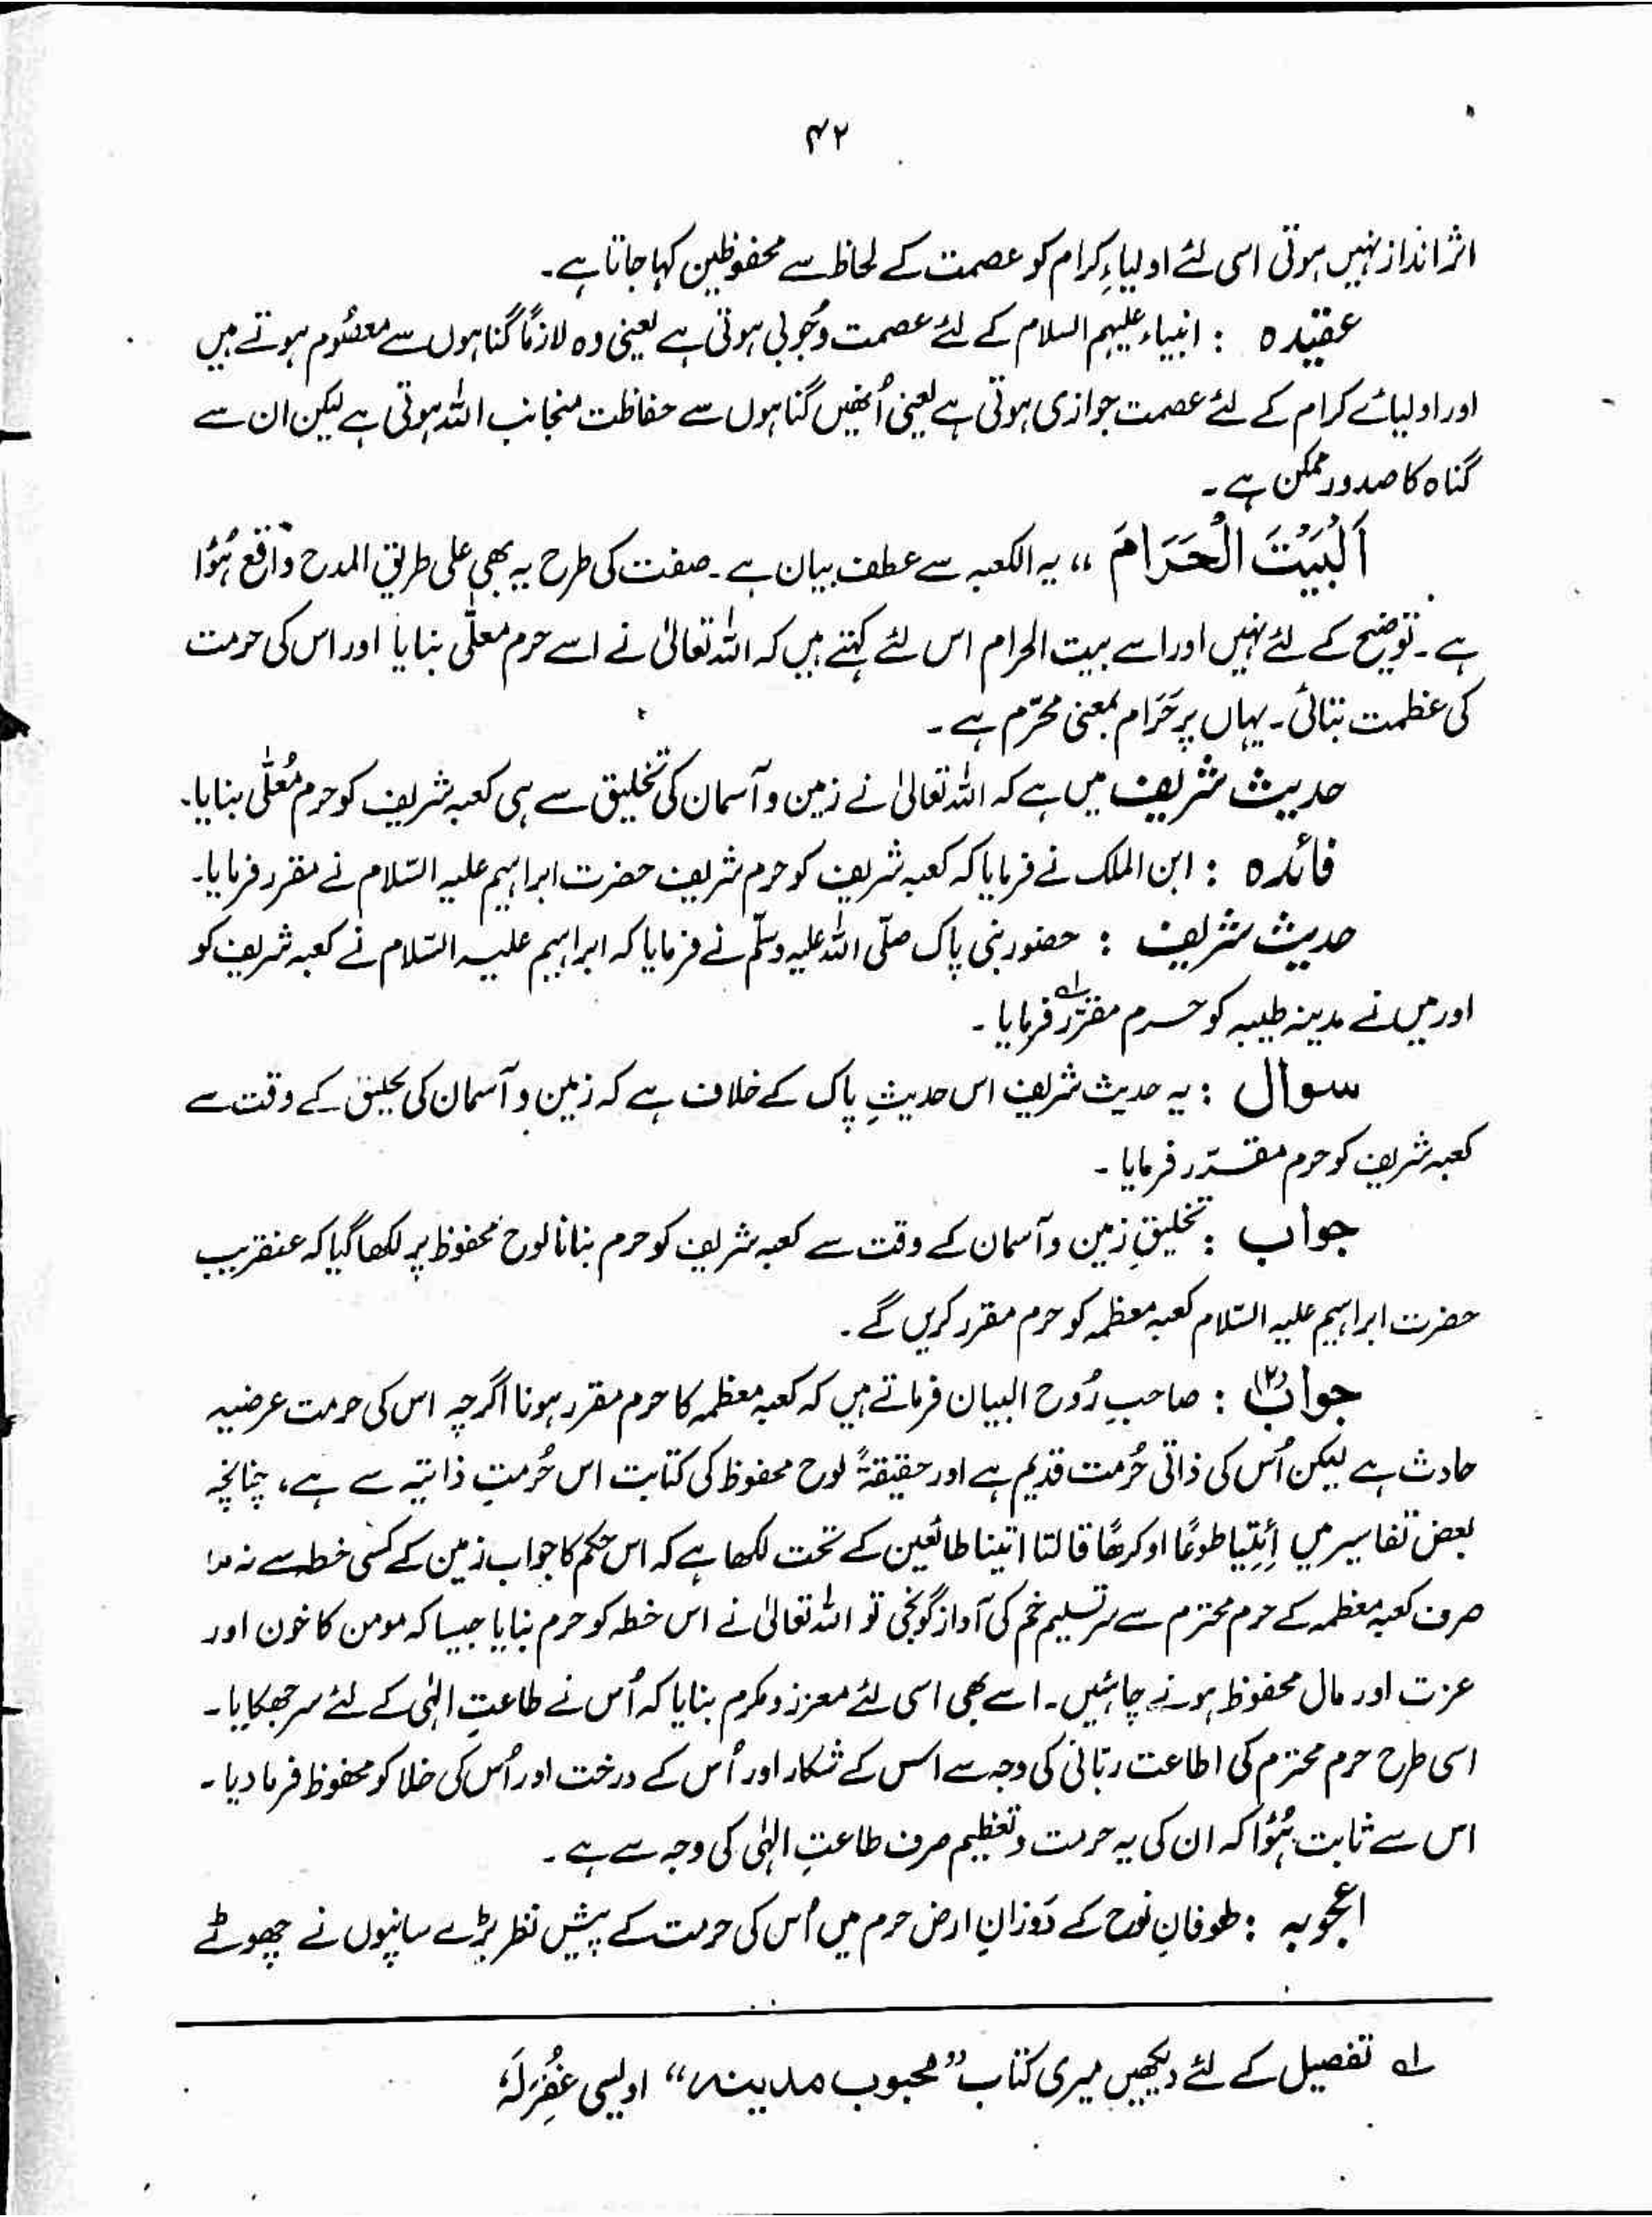 ۴۲
اثر انداز نہیں ہوتی اسی لئے اولیاءِ کرام کو عصمت کے لحاظ سے محفوظین کہا جاتا ہے۔
عقیدہ : انبیاء علیہم السلام کے لئے عصمت وجُوبی ہوتی ہے یعنی وہ لازماً گناہوں سے معصُوم ہوتے ہیں
اور اولیائے کرام کے لئے عصمت جوازی ہوتی ہے یعنی اُنھیں گناہوں سے حفاظت منجانب اللہ ہوتی ہے لیکن ان سے
گناہ کا صدور ممکن ہے۔
اَلْبَیْتَ الْحَرَامَ ،، یہ الکعبہ سے عطف بیان ہے۔ صفت کی طرح یہ بھی علی طریق المدح واقع ہُوا
ہے۔ توضیح کے لئے نہیں اور اسے بیت الحرام اس لئے کہتے ہیں کہ اللہ تعالیٰ نے اسے حرم معلّٰی بنایا اور اس کی حرمت
کی عظمت بتائی۔ یہاں پر حَرَام بمعنی محرّم ہے۔
حدیث شریف میں ہے کہ اللہ تعالیٰ نے زمین و آسمان کی تخلیق سے ہی کعبہ شریف کو حرم مُعلّٰی بنایا۔
فائدہ : ابن الملک نے فرمایا کہ کعبہ شریف کو حرم شریف حضرت ابراہیم علیہ السّلام نے مقرر فرمایا۔
حدیث شریف : حضور نبی پاک صلّی اللہ علیہ وسلّم نے فرمایا کہ ابراہیم علیہ السّلام نے کعبہ شریف کو
اور میں نے مدینہ طیبہ کو حرم مقرّر فرمایا۔ لہ
سوال : یہ حدیث شریف اس حدیثِ پاک کے خلاف ہے کہ زمین و آسمان کی تخلیق کے وقت سے
کعبہ شریف کو حرم مقرّر فرمایا۔
جواب : تخلیقِ زمین و آسمان کے وقت سے کعبہ شریف کو حرم بنانا لوح محفوظ پر لکھا گیا کہ عنقریب
حضرت ابراہیم علیہ السّلام کعبہ معظمہ کو حرم مقرر کریں گے۔
جواب (۲) : صاحبِ رُوح البیان فرماتے ہیں کہ کعبہ معظمہ کا حرم مقرر ہونا اگرچہ اس کی حرمت عرضیہ
حادث ہے لیکن اُس کی ذاتی حُرمت قدیم ہے اور حقیقۃً لوح محفوظ کی کتابت اس حُرمتِ ذاتیہ سے ہے، چنانچہ
بعض تفاسیر میں اِئتِیا طوعًا او کرھًا قالتا اتینا طائعین کے تحت لکھا ہے کہ اس حکم کا جواب زمین کے کسی خطہ سے نہ ملا
صرف کعبہ معظمہ کے حرم محترم سے سرتسلیم خم کی آواز گونجی تو اللہ تعالیٰ نے اس خطہ کو حرم بنایا جیسا کہ مومن کا خون اور
عزت اور مال محفوظ ہونے چاہئیں۔ اسے بھی اسی لئے معزز و مکرم بنایا کہ اُس نے طاعتِ الٰہی کے لئے سر جھکایا۔
اسی طرح حرم محترم کی اطاعت ربّانی کی وجہ سے اس کے شکار اور اُس کے درخت اور اُس کی خلا کو محفوظ فرما دیا۔
اس سے ثابت ہُوا کہ ان کی یہ حرمت و تعظیم صرف طاعتِ الٰہی کی وجہ سے ہے۔
اعجوبہ : طوفانِ نوح کے دَوران ارض حرم میں اُس کی حرمت کے پیش نظر بڑے سانپوں نے چھوٹے
لہ تفصیل کے لئے دیکھیں میری کتاب ”محبوب مدینہ“ اویسی غُفِرَ لَہٗ